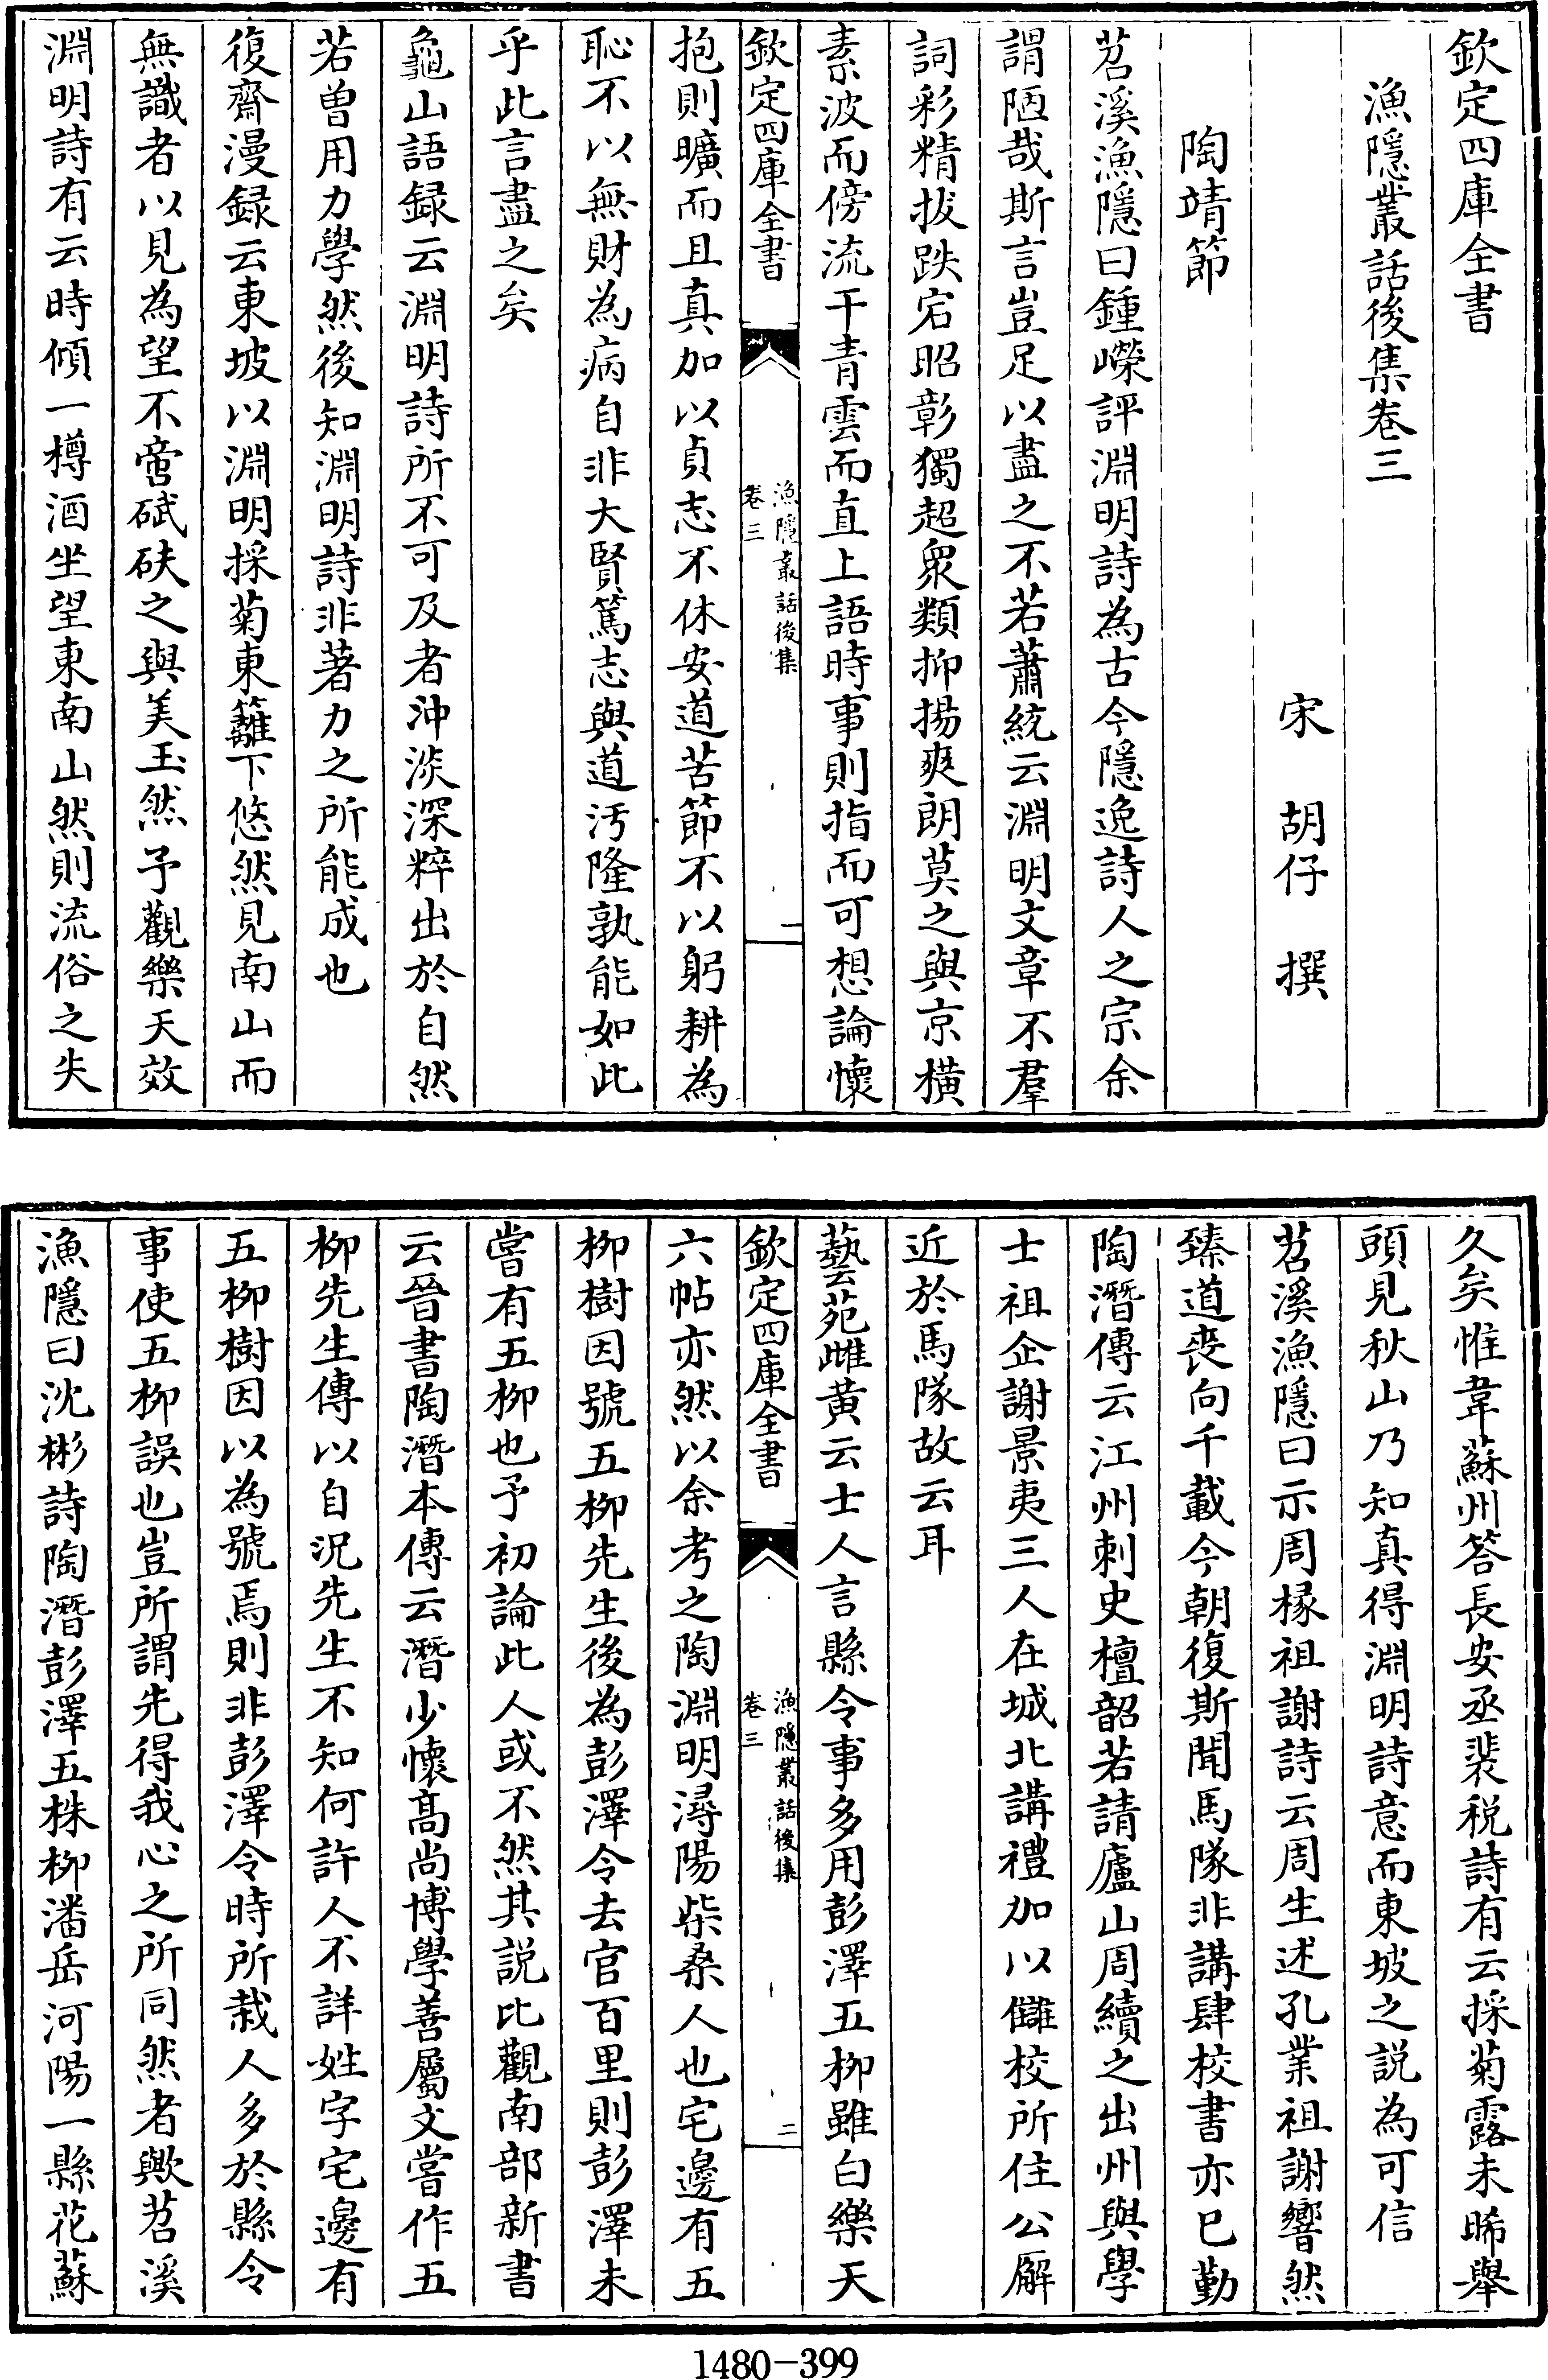 欽定四庫全書
漁隱叢話後集卷三
宋 胡仔 撰
陶靖節
苕溪漁隱曰鍾嶸評淵明詩為古今隱逸詩人之宗余
謂陋哉斯言豈足以盡之不若蕭統云淵明文章不羣
詞彩精拔跌宕昭彰獨超衆類抑揚爽朗莫之與京横
素波而傍流干青雲而直上語時事則指而可想論懷
欽定四庫全書
漁隱叢話後集
卷三
一
抱則曠而且真加以貞志不休安道苦節不以躬耕為
恥不以無財為病自非大賢篤志與道汚隆孰能如此
乎此言盡之矣
龜山語録云淵明詩所不可及者沖淡深粹出於自然
若曾用力學然後知淵明詩非著力之所能成也
復齋漫録云東坡以淵明採菊東籬下悠然見南山而
無識者以見為望不啻碔砆之與美玉然予觀樂天效
淵明詩有云時傾一樽酒坐望東南山然則流俗之失
久矣惟韋蘇州答長安丞裴税詩有云採菊露未晞舉
頭見秋山乃知真得淵明詩意而東坡之説為可信
苕溪漁隱曰示周掾祖謝詩云周生述孔業祖謝響然
臻道喪向千載今朝復斯聞馬隊非講肆校書亦已勤
陶潛傳云江州刺史檀韶若請廬山周續之出州與學
士祖企謝景夷三人在城北講禮加以讎校所住公廨
近於馬隊故云耳
藝苑雌黄云士人言縣令事多用彭澤五柳雖白樂天
欽定四庫全書
漁隱叢話後集
卷三
二
六帖亦然以余考之陶淵明潯陽柴桑人也宅邊有五
柳樹因號五柳先生後為彭澤令去官百里則彭澤未
嘗有五柳也予初論此人或不然其説比觀南部新書
云晉書陶潛本傳云潛少懷髙尚博學善屬文嘗作五
柳先生傳以自況先生不知何許人不詳姓字宅邊有
五柳樹因以為號焉則非彭澤令時所栽人多於縣令
事使五柳誤也豈所謂先得我心之所同然者歟苕溪
漁隱曰沈彬詩陶潛彭澤五株柳潘岳河陽一縣花蘇
1480-399